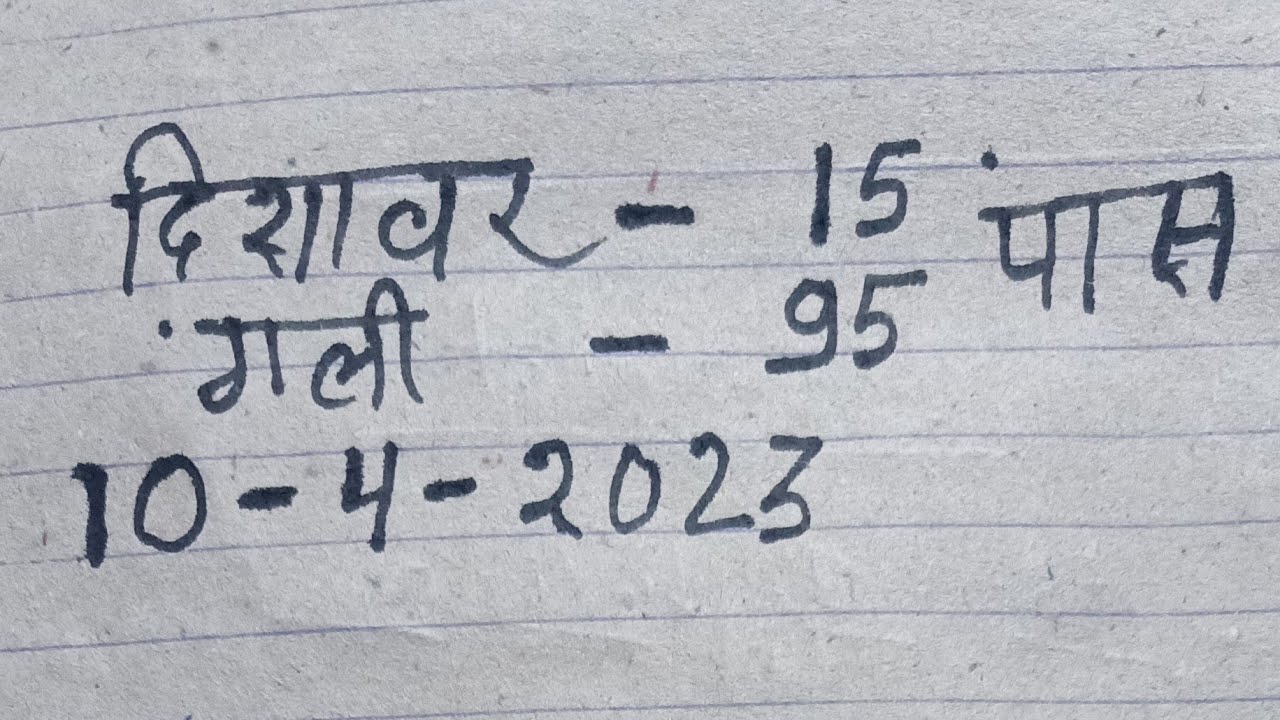 दिशावर - 15 पास
गली - 95
10-4-2023